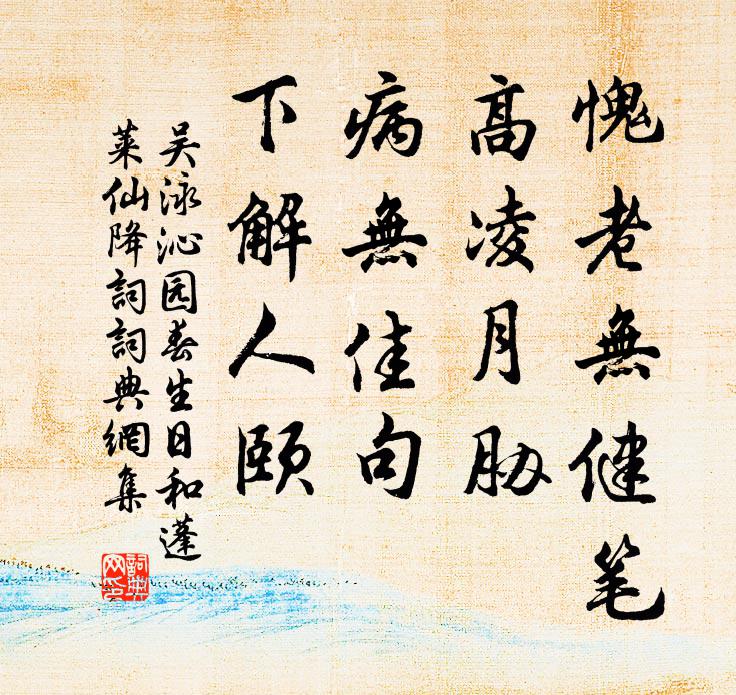 愧老無健笔
高凌月胁
病無佳句
下解人颐
吴泳沁园春生日和蓬
莱仙降詞詞典網集
詞典
网印